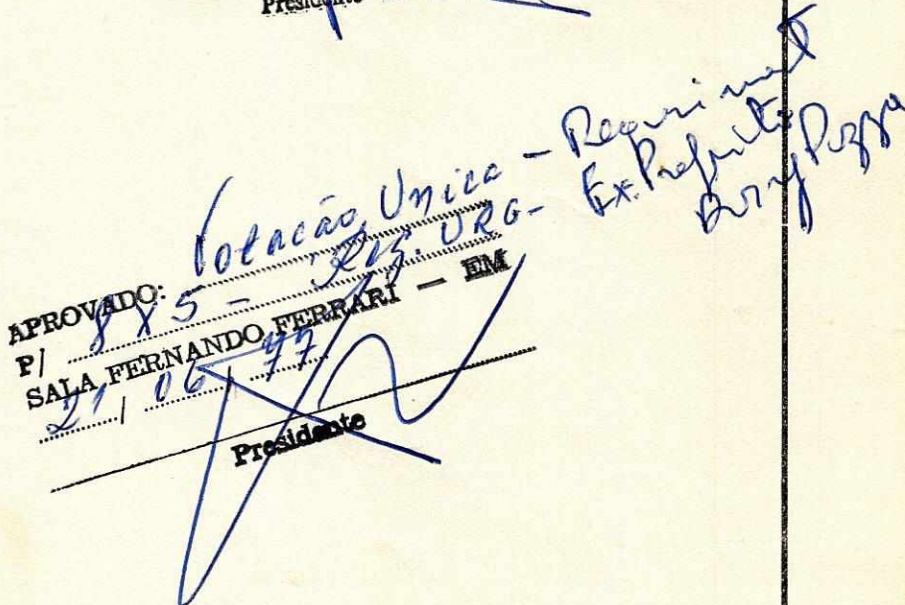 Presidente
APROVADO: Votação Unica - Requeriment
P/ 8 X 5 - Reg. URG - Ex. Prefeito
SALA FERNANDO FERRARI — EM
21 / 06 / 77
Presidente